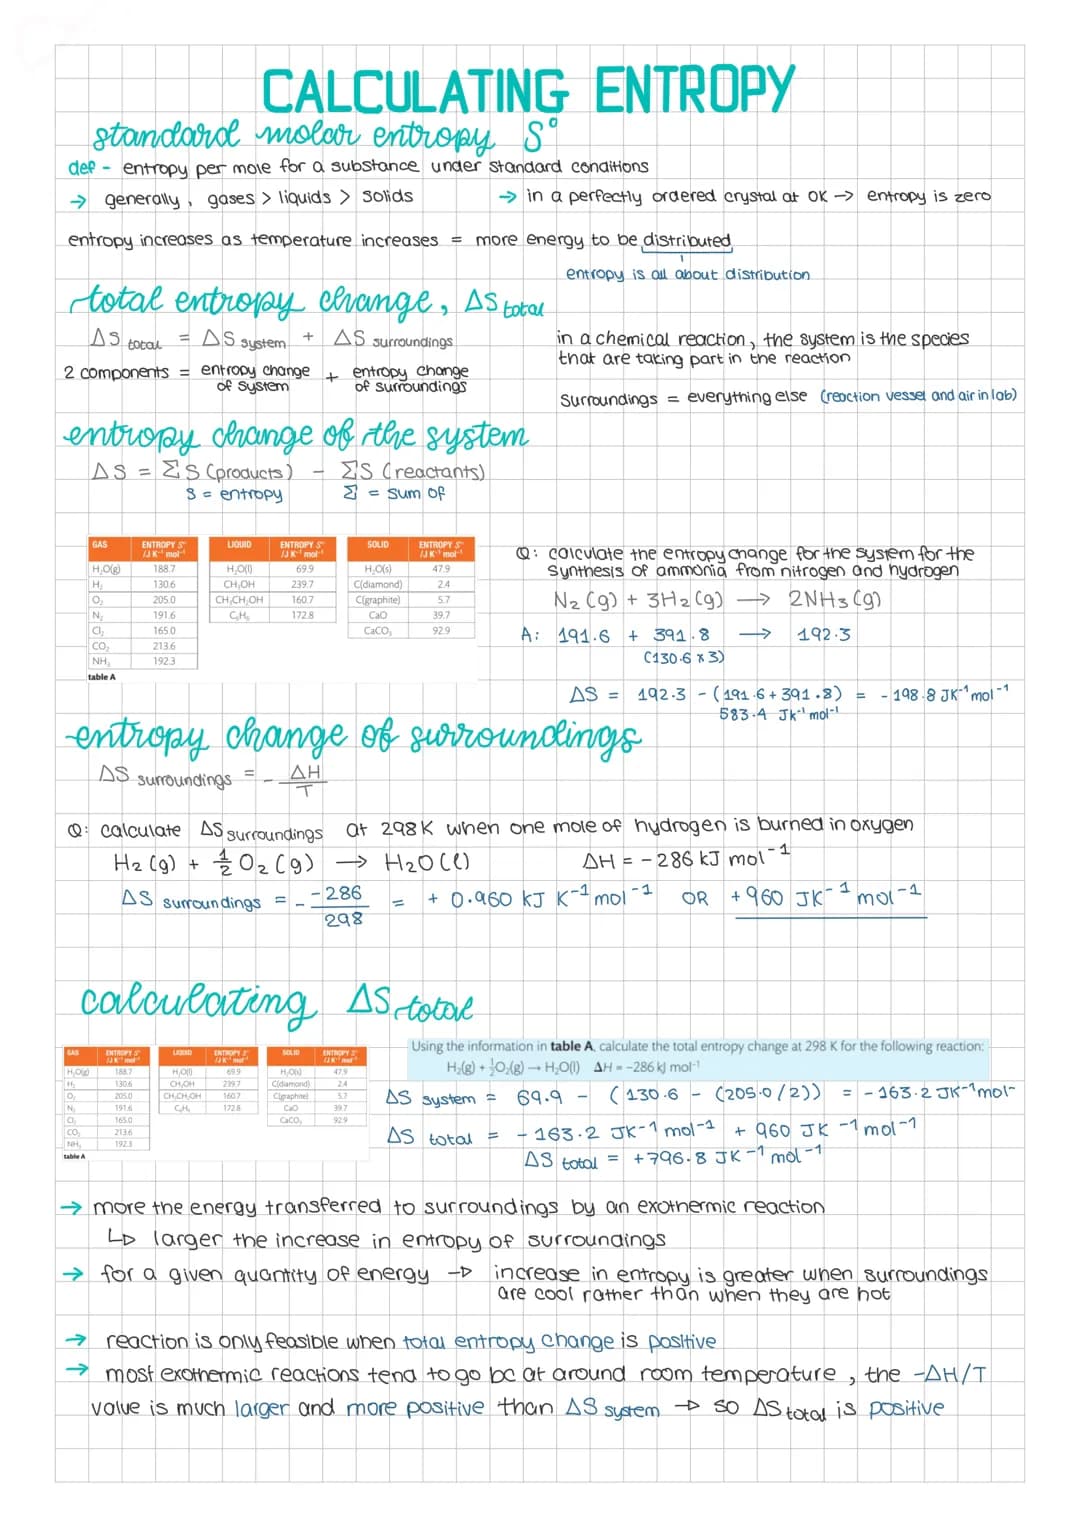 CALCULATING ENTROPY
standard molar entropy S°
def - entropy per mole for a substance under standard conditions
→ generally, gases > liquids > solids → in a perfectly ordered crystal at 0K → entropy is zero
entropy increases as temperature increases = more energy to be distributed
entropy is all about distribution
total entropy change, ΔS total
ΔS total = ΔS system + ΔS surroundings
in a chemical reaction, the system is the species
that are taking part in the reaction
2 components = entropy change of system + entropy change of surroundings
surroundings = everything else (reaction vessel and air in lab)
entropy change of the system
ΔS = ΣS (products) - ΣS (reactants)
S = entropy Σ = sum of
GAS ENTROPY S° /J K⁻¹ mol⁻¹
H₂O(g) 188.7
H₂ 130.6
O₂ 205.0
N₂ 191.6
Cl₂ 165.0
CO₂ 213.6
NH₃ 192.3
table A
LIQUID ENTROPY S° /J K⁻¹ mol⁻¹
H₂O(l) 69.9
CH₃OH 239.7
CH₃CH₂OH 160.7
C₆H₆ 172.8
SOLID ENTROPY S° /J K⁻¹ mol⁻¹
H₂O(s) 47.9
C(diamond) 2.4
C(graphite) 5.7
CaO 39.7
CaCO₃ 92.9
Q: calculate the entropy change for the system for the
synthesis of ammonia from nitrogen and hydrogen
N₂ (g) + 3H₂ (g) → 2NH₃ (g)
A: 191.6 + 391.8 → 192.3
(130.6 x 3)
ΔS = 192.3 - (191.6 + 391.8) = -198.8 JK⁻¹ mol⁻¹
583.4 JK⁻¹ mol⁻¹
entropy change of surroundings
ΔS surroundings = - ΔH / T
Q: calculate ΔS surroundings at 298K when one mole of hydrogen is burned in oxygen
H₂ (g) + ½ O₂ (g) → H₂O (l) ΔH = -286 kJ mol⁻¹
ΔS surroundings = - -286 / 298 = + 0.960 kJ K⁻¹ mol⁻¹ OR +960 JK⁻¹ mol⁻¹
calculating ΔS total
GAS ENTROPY S° /J K⁻¹ mol⁻¹
H₂O(g) 188.7
H₂ 130.6
O₂ 205.0
N₂ 191.6
Cl₂ 165.0
CO₂ 213.6
NH₃ 192.3
table A
LIQUID ENTROPY S° /J K⁻¹ mol⁻¹
H₂O(l) 69.9
CH₃OH 239.7
CH₃CH₂OH 160.7
C₆H₆ 172.8
SOLID ENTROPY S° /J K⁻¹ mol⁻¹
H₂O(s) 47.9
C(diamond) 2.4
C(graphite) 5.7
CaO 39.7
CaCO₃ 92.9
Using the information in table A, calculate the total entropy change at 298 K for the following reaction:
H₂(g) + ½O₂(g) → H₂O(l) ΔH = -286 kJ mol⁻¹
ΔS system = 69.9 - (130.6 - (205.0/2)) = -163.2 JK⁻¹mol⁻
ΔS total = -163.2 JK⁻¹ mol⁻¹ + 960 JK⁻¹ mol⁻¹
ΔS total = +796.8 JK⁻¹ mol⁻¹
→ more the energy transferred to surroundings by an exothermic reaction
↳ larger the increase in entropy of surroundings
→ for a given quantity of energy → increase in entropy is greater when surroundings
are cool rather than when they are hot
→ reaction is only feasible when total entropy change is positive
→ most exothermic reactions tend to go bc at around room temperature, the -ΔH/T
value is much larger and more positive than ΔS system → so ΔS total is positive